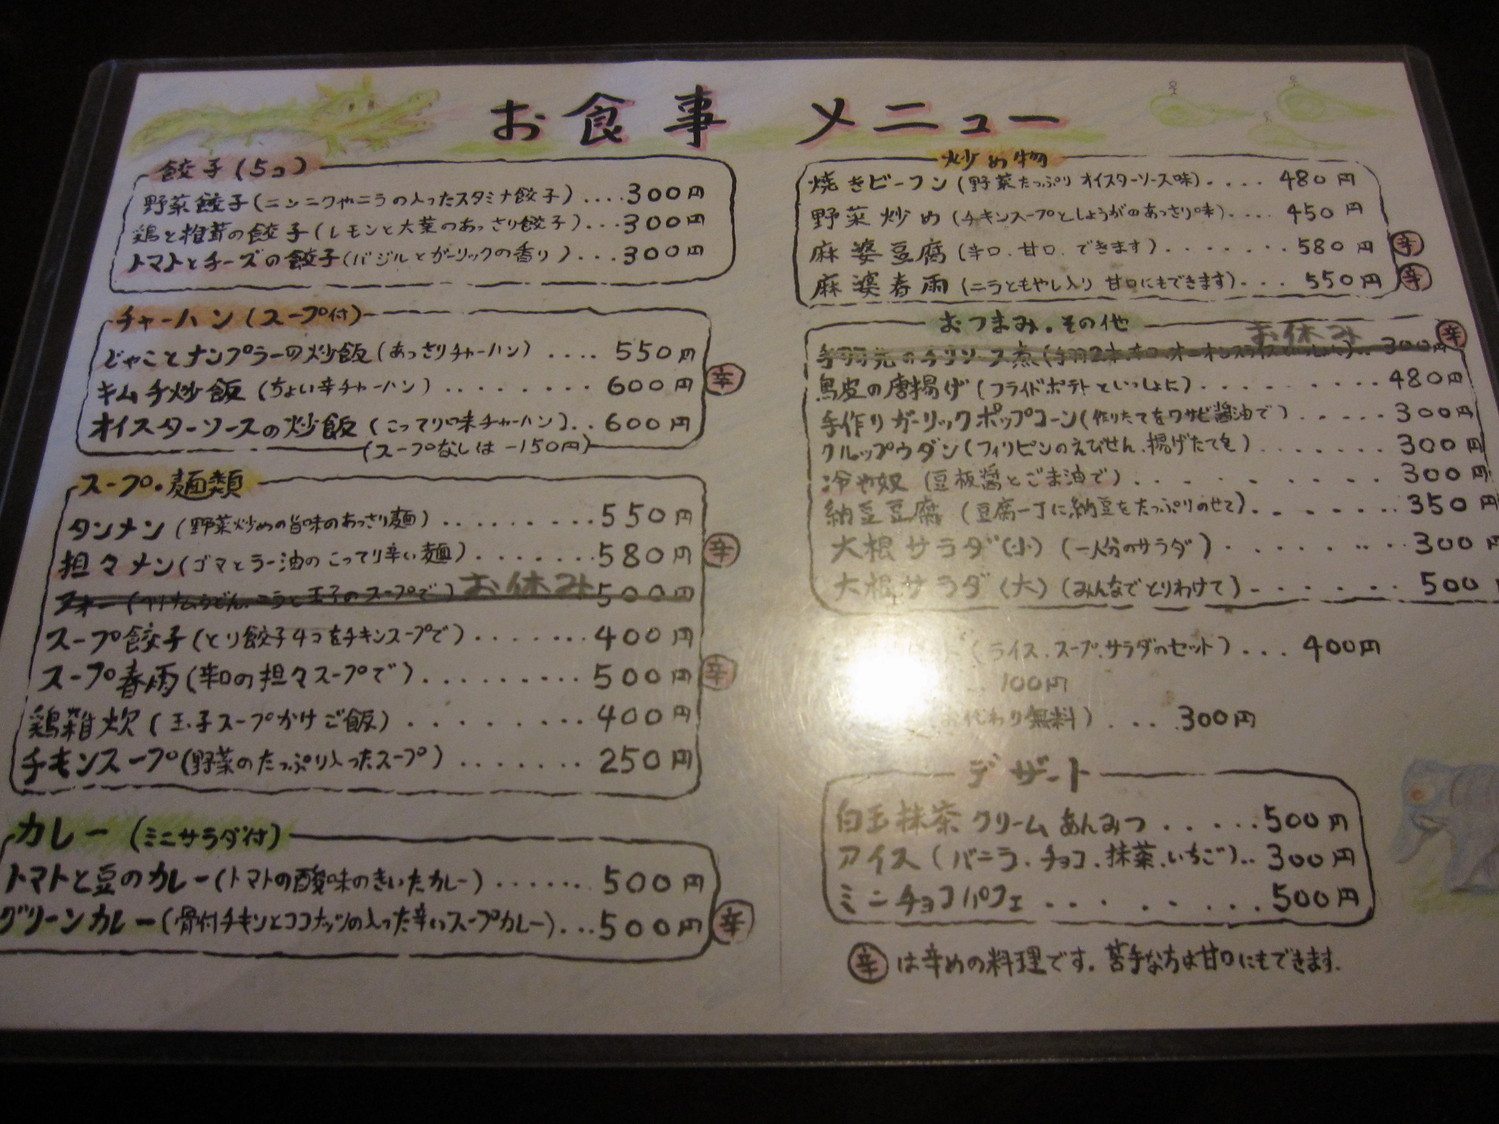 お食事 メニュー
餃子(5コ)
野菜餃子(ニンニクやニラの入ったスタミナ餃子)....300円
鶏と椎茸の餃子(レモンと大葉のあっさり餃子)...300円
トマトとチーズの餃子(バジルとガーリックの香り)...300円
チャーハン(スープ付)
じゃことナンプラーの炒飯(あっさりチャーハン)....550円
キムチ炒飯(ちょい辛チャーハン)........600円 辛
オイスターソースの炒飯(こってり味チャーハン)..600円
(スープなしは-150円)
スープ・麺類
タンメン(野菜炒めの旨味のあっさり麺).........550円
担々メン(ゴマとラー油のこってり辛い麺).......580円 辛
フォー( 玉子のスープで)お休み500円
スープ餃子(とり餃子4コをチキンスープで).......400円
スープ春雨(辛口の担々スープで).........500円 辛
鶏雑炊(玉子スープかけご飯).........400円
チキンスープ(野菜のたっぷり入ったスープ)........250円
カレー(ミニサラダ付)
トマトと豆のカレー(トマトの酸味のきいたカレー)......500円
グリーンカレー(骨付チキンとココナッツの入った辛いスープカレー)...500円 辛
炒め物
焼きビーフン(野菜たっぷりオイスターソース味).....480円
野菜炒め(チキンスープとしょうがのあっさり味).....450円
麻婆豆腐(辛口、甘口、できます)........580円 辛
麻婆春雨(ニラともやし入り 甘口にもできます)....550円 辛
おつまみ・その他
手羽元のチリソース煮 お休み 300円 辛
鳥皮の唐揚げ(フライドポテトといっしょに).........480円
手作りガーリックポップコーン(作りたてをワサビ醤油で).....300円
クルップウダン(フィリピンのえびせん、揚げたてを).......300円
冷や奴(豆板醤とごま油で)..........300円
納豆豆腐(豆腐一丁に納豆をたっぷりのせて).......350円
大根サラダ(小)(一人分のサラダ)........300円
大根サラダ(大)(みんなでとりわけて)-......500
(ライス、スープ、サラダのセット)...400円
..100円
おかわり無料)...300円
デザート
白玉抹茶クリームあんみつ......500円
アイス(バニラ、チョコ、抹茶、いちご)..300円
ミニチョコパフェ.........500円
辛は辛めの料理です。苦手な方は甘口にもできます。